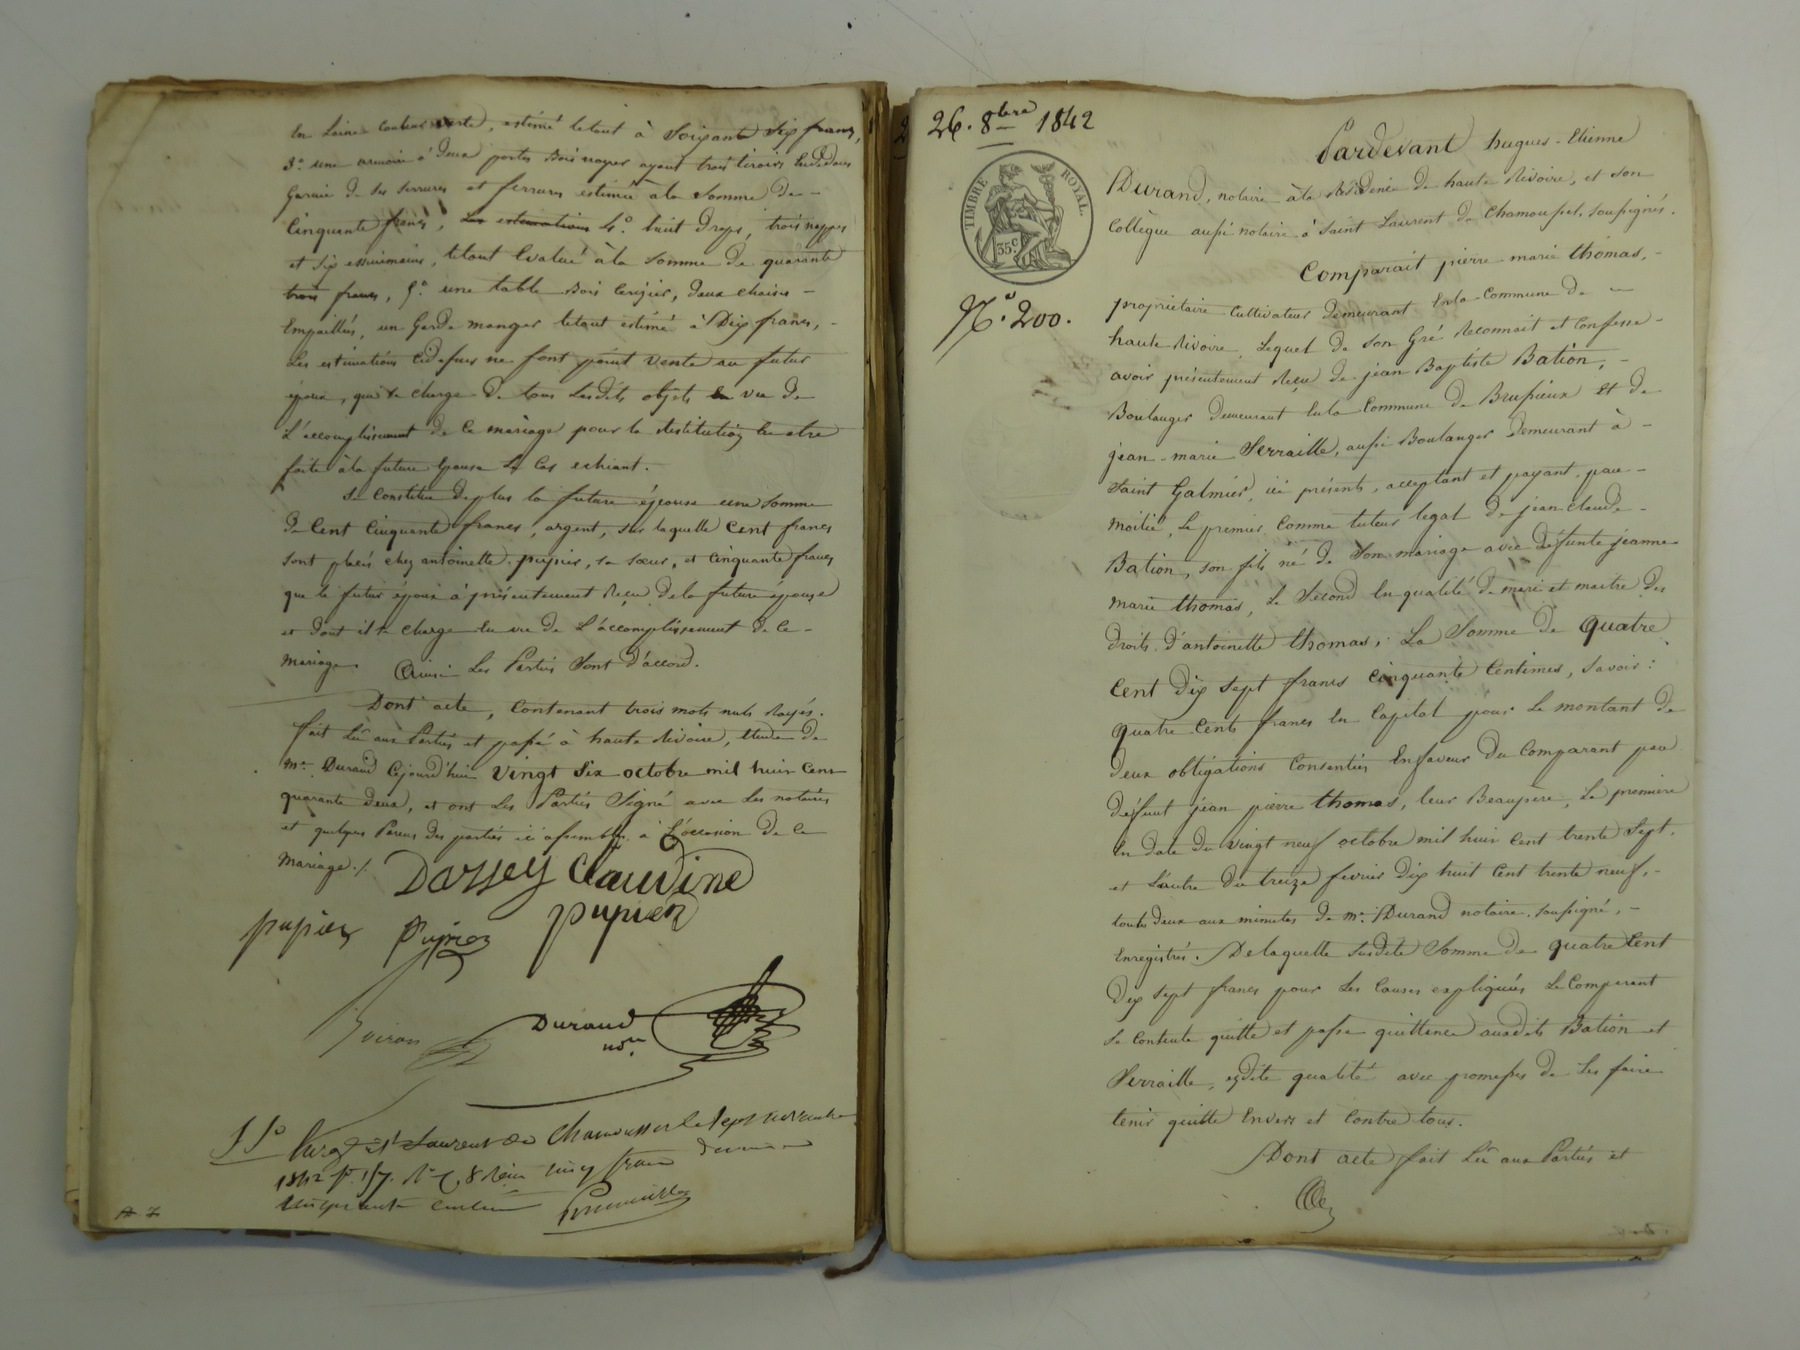 en laine couleur verte, estimé letout à Soixante Six francs,
3° une armoire à deux portes Bois noyer ayant trois tiroirs endedans
garnie de ses serrures et ferrures estimée à la Somme de -
Cinquante francs, les estimations 4° huit draps, trois nappes
et Six essuimains, letout Evalué à la somme de quarante
trois francs, 5° une table Bois Cerizier, deux chaises -
Empaillés, un Garde manger letout estimé à Dix francs, -
Les estimations cidessus ne font point vente au futur
époux, qui se charge de tous Lesdits objets en vue de
L'accomplissement de ce mariage pour la restitution en etre
faite à la future Epouse Le Cas echéant.
Se constitue deplus la future épouse une Somme
de Cent Cinquante francs, argent, sur laquelle Cent francs
sont placés chez antoinette pupier, sa sœur, et cinquante francs
que le futur époux à présentement reçu de la future épouse
et dont il se charge en vue de L'accomplissement de ce -
Mariage. Ainsi Les Parties Sont d'accord.
Dont acte, Contenant trois mots nuls Rayés.
fait Lû aux Parties et passé à haute Rivoire, Etude de
me. Durand Cejourd'hui Vingt Six octobre mil huit Cent
quarante deux, et ont Les Parties Signé avec Les notaires
et quelques Parens des parties ici assemblés à L'occasion de ce
Mariage ./.
Dassey Claudine
pupier Pupier pupier
Durand
nore
St Laurent de Chamousset le sept novembre
1842 fo 157. Ro C. 8 Reçu cinq francs
cinquante centimes
26. 8bre 1842
TIMBRE ROYAL.
35 c
No. 200.
Pardevant hugues-Etienne
Durand, notaire à la Résidence de haute Rivoire, et son
Collègue aussi notaire à Saint Laurent de Chamousset, soussignés.
Comparait pierre marie thomas, -
propriétaire Cultivateur demeurant Enla Commune de -
haute Rivoire, Lequel de son Gré Reconnait et Confesse -
avoir présentement Reçu de jean Baptiste Bation, -
Boulanger demeurant Enla Commune de Brussieux et de
jean-marie Serraille, aussi Boulanger demeurant à -
Saint Galmier, ici présents, acceptant et payant par -
Moitié, Le premier Comme tuteur légal de jean Claude -
Bation, son fils né de Son mariage avec défunte jeanne
Marie thomas, Le Second En qualité de mari et maitre des
droits d'antoinette thomas; La Somme de Quatre
Cent Dix sept francs Cinquante Centimes, Savoir:
Quatre Cents francs En Capital pour Le montant de
deux obligations Consenties En faveur du Comparant par
défunt jean pierre thomas, leur Beaupère, La première
En date du Vingt neuf octobre mil huit Cent trente Sept,
et L'autre du treize fevrier dix huit Cent trente neuf, -
toutes deux aux minutes de me. Durand notaire soussigné, -
Enregistrés. De laquelle Susdite Somme de quatre Cent
dix sept francs pour Les Causes expliquées Le Comparant
se Contente quitte et passe quittance auxdits Bation et
Serraille, exdite qualité avec promesses de Les faire
tenir quitte Envers et Contre tous.
Dont acte fait Lû aux Parties et